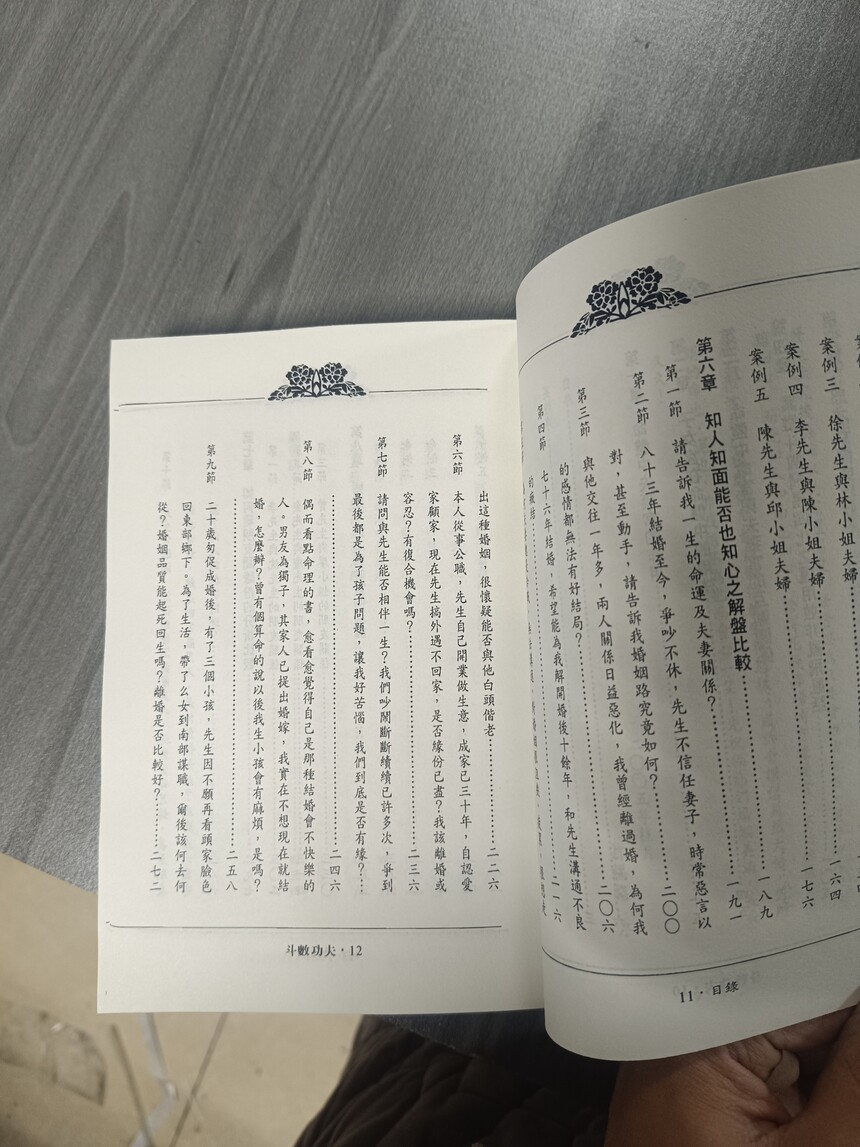 案例三　徐先生與林小姐夫婦⋯⋯一六四
案例四　李先生與陳小姐夫婦⋯⋯一七六
案例五　陳先生與邱小姐夫婦⋯⋯一八九
第六章　知人知面能否也知心之解盤比較⋯⋯一九一
第一節　請告訴我一生的命運及夫妻關係？⋯⋯二〇〇
第二節　八十三年結婚至今，爭吵不休，先生不信任妻子，時常惡言以
對，甚至動手，請告訴我婚姻路究竟如何？⋯⋯二〇六
第三節　與他交往一年多，兩人關係日益惡化，我曾經離過婚，為何我
的感情都無法有好結局？⋯⋯二一六
第四節　七十六年結婚，希望能為我解開婚後十餘年，和先生溝通不良
11．目錄
出這種婚姻，很懷疑能否與他白頭偕老⋯⋯二二六
第六節　本人從事公職，先生自己開業做生意，成家已三十年，自認愛
家顧家，現在先生搞外遇不回家，是否緣份已盡？我該離婚或
容忍？有復合機會嗎？⋯⋯二三六
第七節　請問與先生能否相伴一生？我們吵鬧斷斷續續已許多次，爭到
最後都是為了孩子問題，讓我好苦惱，我們到底是否有緣？⋯
⋯⋯二四六
第八節　偶而看點命理的書，愈看愈覺得自己是那種結婚會不快樂的
人。男友為獨子，其家人已提出婚嫁，我實在不想現在就結
婚，怎麼辦？曾有個算命的說以後我生小孩會有麻煩，是嗎？
⋯⋯二五八
第九節　二十歲匆促成婚後，有了三個小孩，先生因不願再看頭家臉色
回東部鄉下。為了生活，帶了么女到南部謀職，爾後該何去何
從？婚姻品質能起死回生嗎？離婚是否比較好？⋯⋯二七二
斗數功夫．12